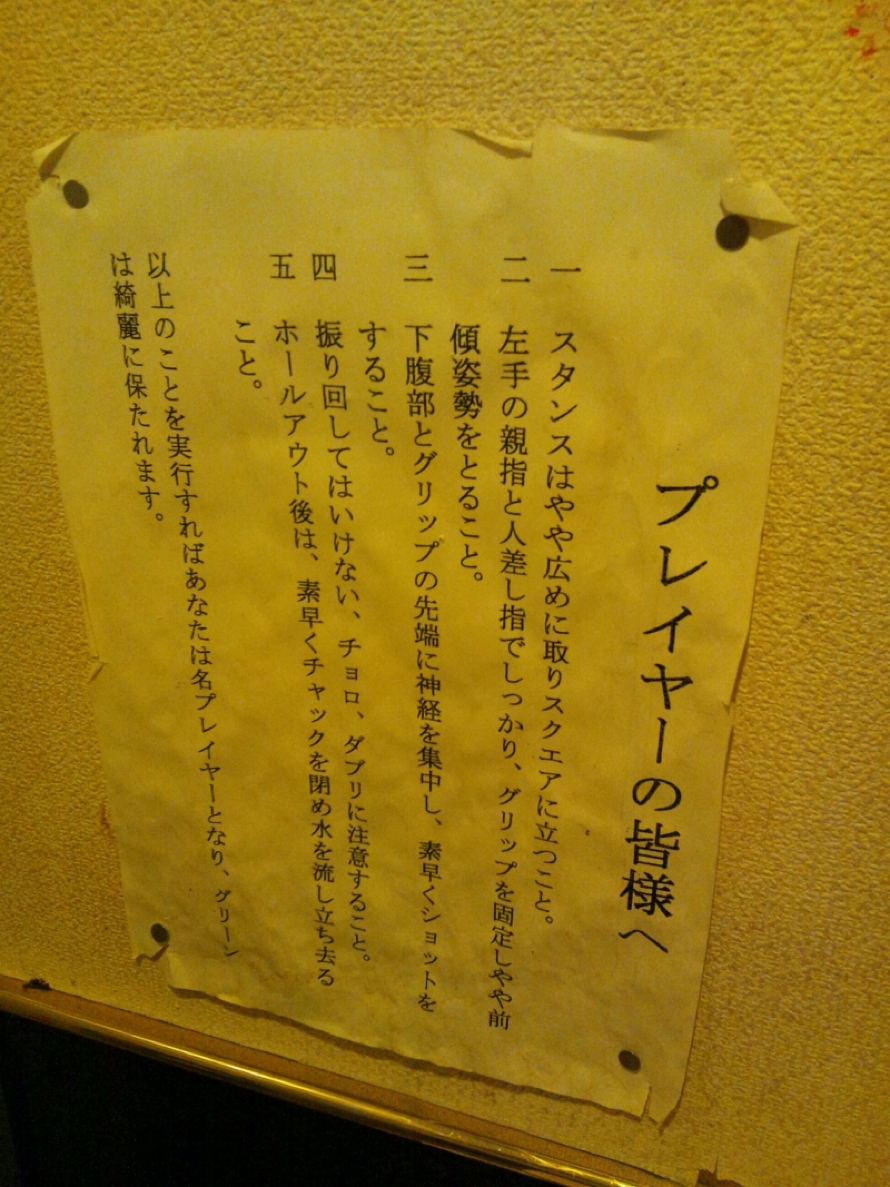 プレイヤーの皆様へ
一 スタンスはやや広めに取りスクエアに立つこと。
二 左手の親指と人差し指でしっかり、グリップを固定しやや前
傾姿勢をとること。
三 下腹部とグリップの先端に神経を集中し、素早くショットを
すること。
四 振り回してはいけない、チョロ、ダブリに注意すること。
五 ホールアウト後は、素早くチャックを閉め水を流し立ち去る
こと。
以上のことを実行すればあなたは名プレイヤーとなり、グリーン
は綺麗に保たれます。